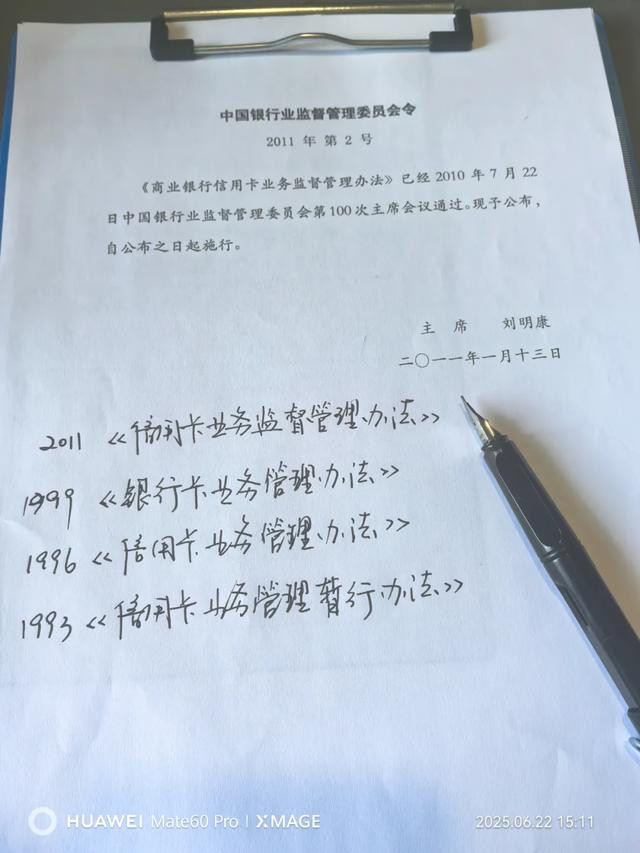 中国银行业监督管理委员会令
2011 年 第 2 号
《商业银行信用卡业务监督管理办法》已经2010 年 7 月 22
日中国银行业监督管理委员会第100次主席会议通过。现予公布，
自公布之日起施行。
主 席 刘明康
二〇一一年一月十三日
2011 《信用卡业务监督管理办法》
1999 《银行卡业务管理办法》
1996 《信用卡业务管理办法》
1993 《信用卡业务管理暂行办法》
HUAWEI Mate60 Pro | XMAGE
2025.06.22 15:11